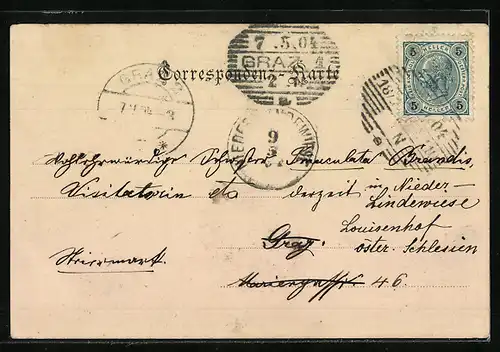 7.5.04
GRAZ 1
5 HELLER 5
5 HELLER 5
Correspondenz-Karte
GRAZ
9
5
Wohlehrwürdige Schwester Immaculata Brandis,
Visitatorin etc derzeit in Nieder-
Lindewiese
Louisenhof
Graz. öster. Schlesien
Steiermark.
Mariengasse 46.